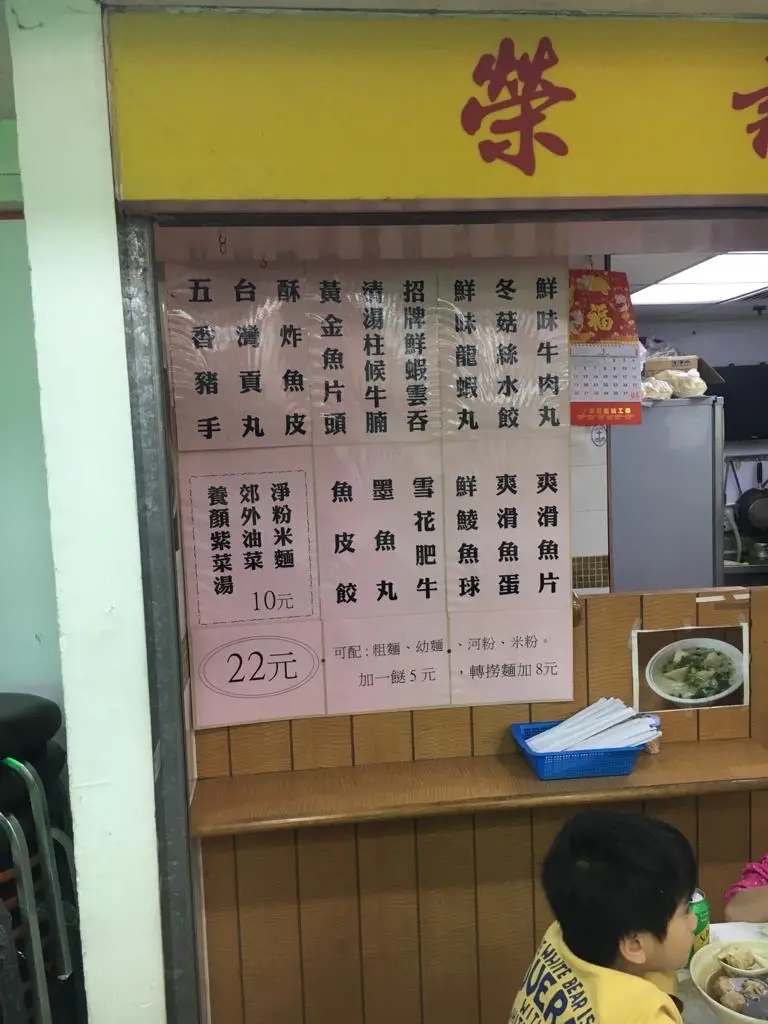 榮
鮮味牛肉丸
冬菇絲水餃
鮮味龍蝦丸
招牌鮮蝦雲吞
清湯柱候牛腩
黃金魚片頭
酥炸魚皮
台灣貢丸
五香豬手
爽滑魚片
爽滑魚蛋
鮮鯪魚球
雪花肥牛
墨魚丸
魚皮餃
淨粉米麵
郊外油菜
養顏紫菜湯
10元
22元
可配:粗麵、幼麵、河粉、米粉。
加一餸5元,轉撈麵加8元
福
WHITE BEAR IS